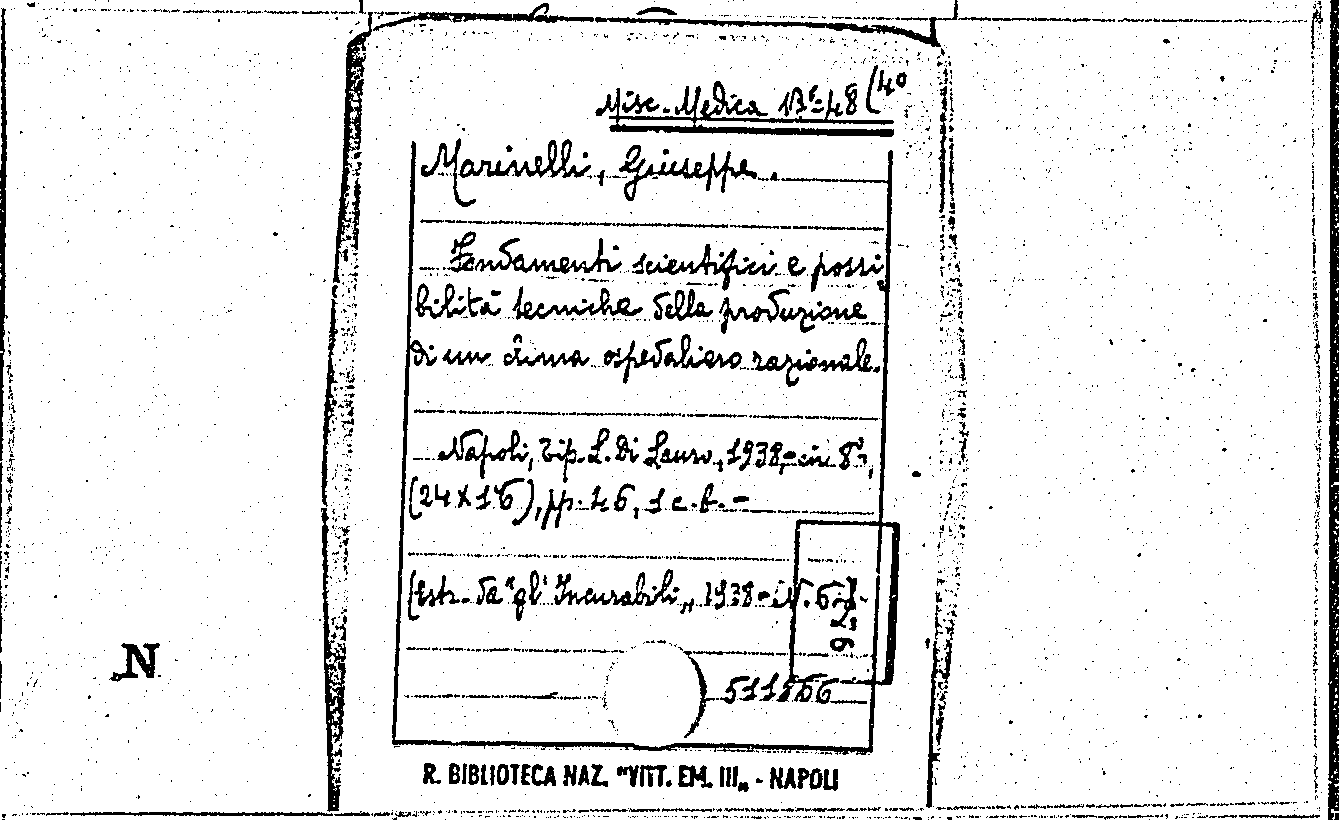 Misc. Medica Bᵃ-48 (40
Marinelli, Giuseppe.
Fondamenti scientifici e possi
bilità tecniche della produzione
di un clima ospedaliero razionale.
Napoli, Tip. L. Di Lauro, 1938,- in 8°,
(24 x 16), pp. 46, 1 c. b. -
(Estr. da "gl' Incurabili„ 1938 - N. 6
N
R. BIBLIOTECA NAZ. "VITT. EM. III„ - NAPOLI